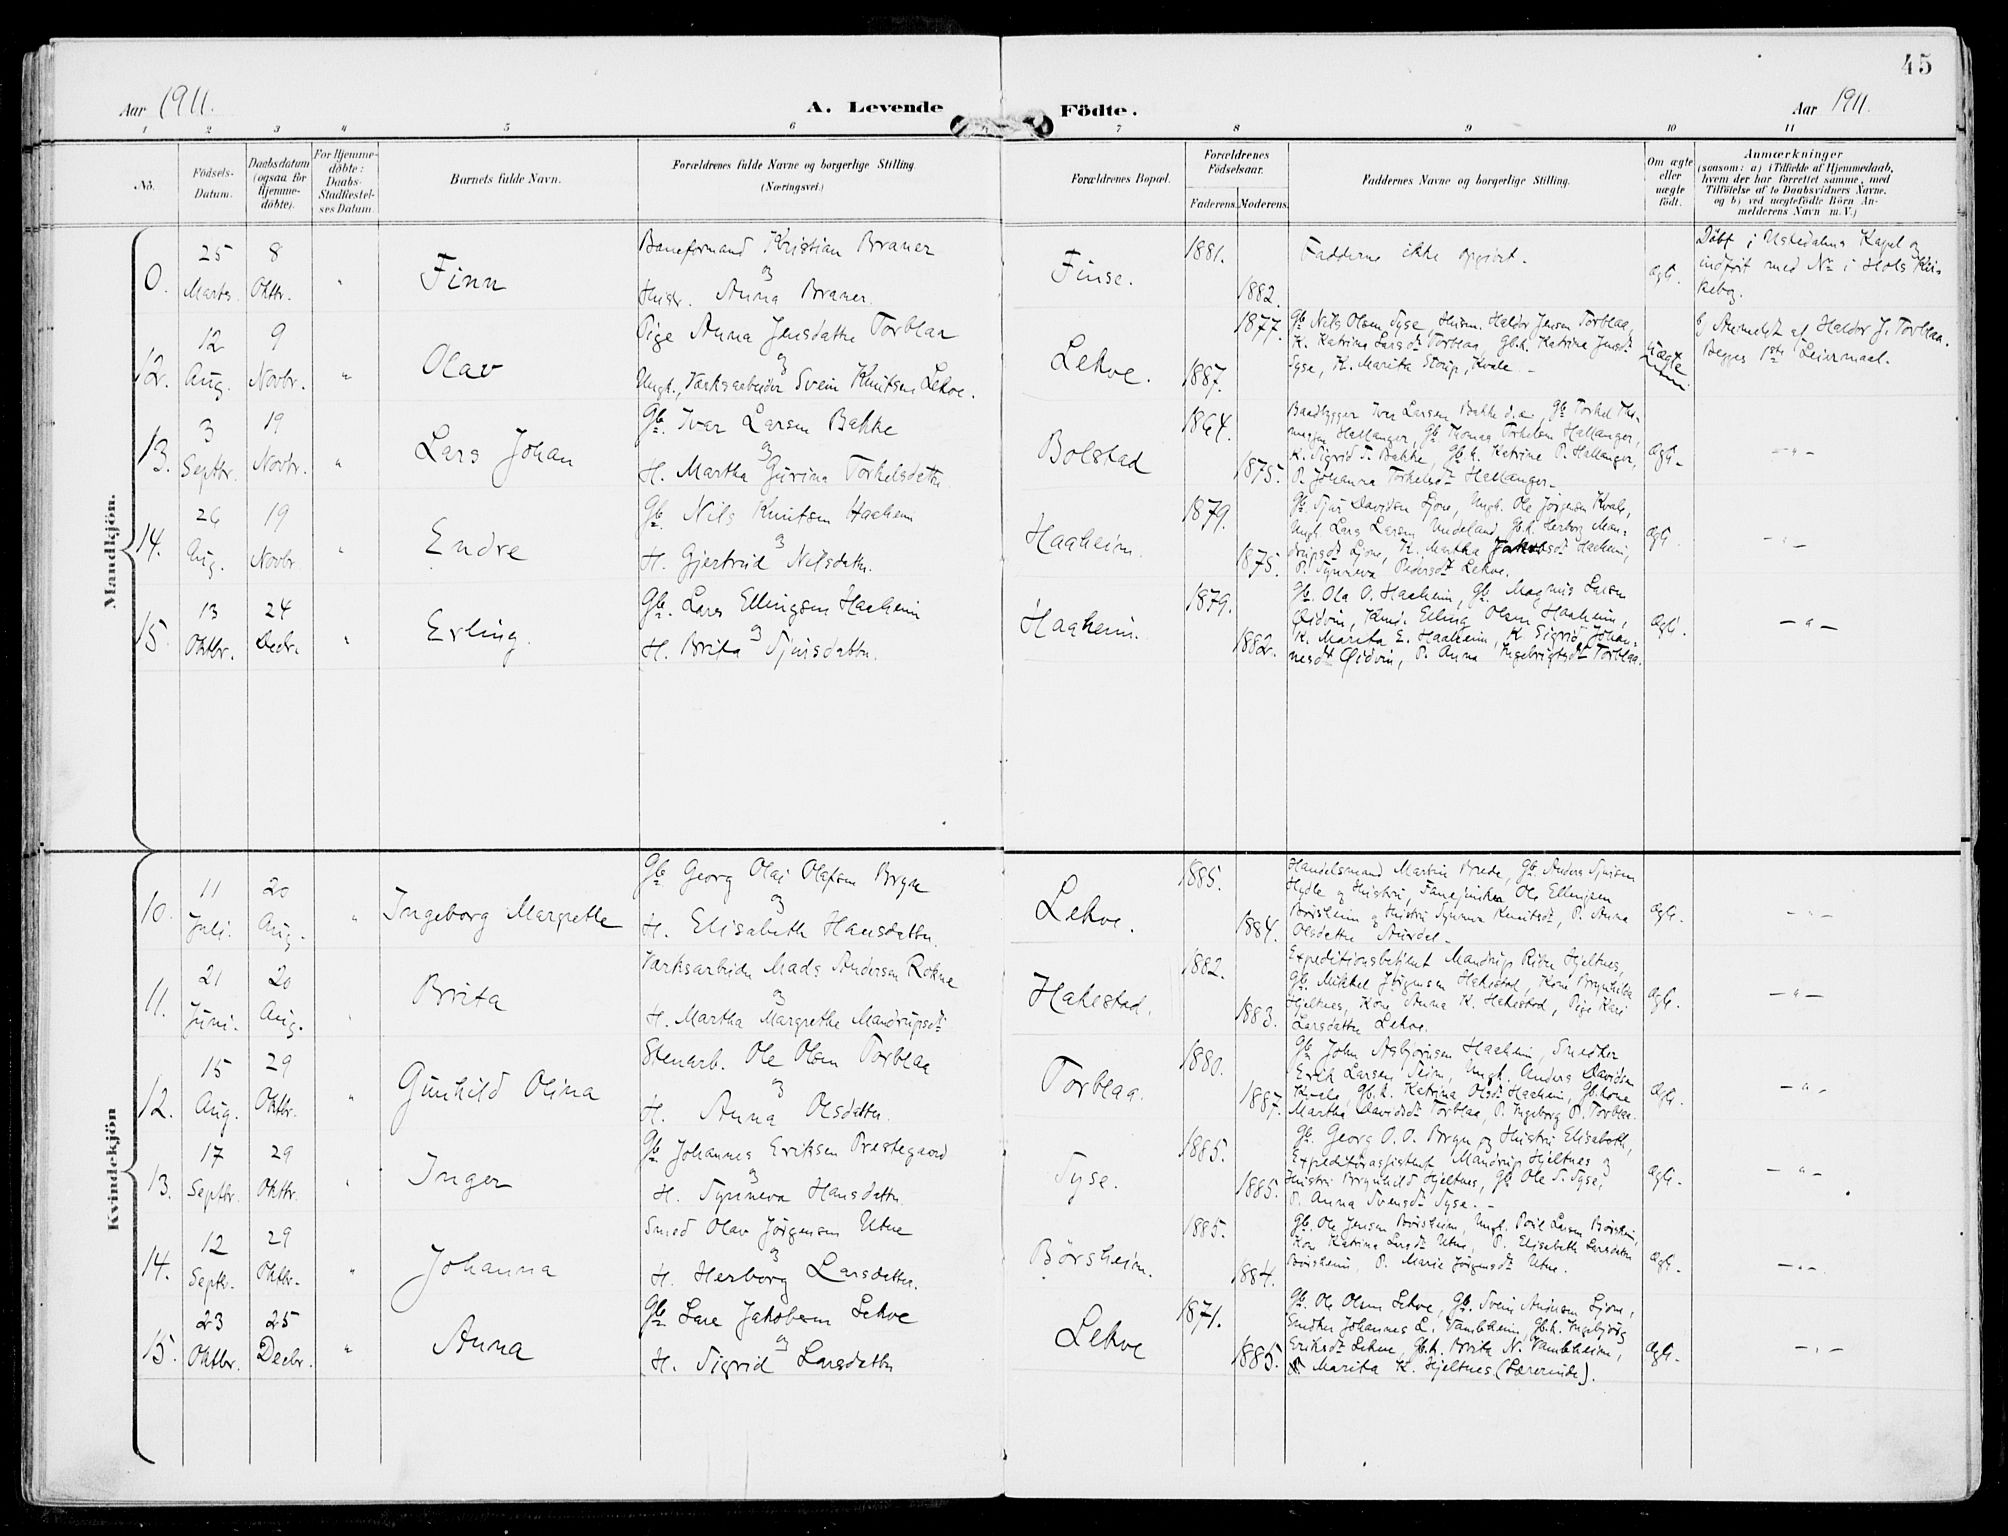 45
Aar 1911.
A. Levende Födte.
Aar 1911.
1 2 3 4 5 6 7 8 9 10 11
No.
Födsels-Datum.
Daabsdatum (ogsaa for Hjemme-døbte).
For Hjemme-døbte: Daabs-Stadfæstel-ses Datum.
Barnets fulde Navn.
Forældrenes fulde Navne og borgerlige Stilling.
(Næringsvei.)
Forældrenes Bopæl.
Forældrenes Födselsaar.
Faderens. Moderens.
Faddernes Navne og borgerlige Stilling.
Om ægte eller uægte født.
Anmærkninger
(saasom: a) i Tilfælde af Hjemmedaab,
hvem der har forrettet samme, med
Tilföielse af to Daabsvidners Navne.
og b) ved uægtefödte Börn An-
melderens Navn m. V.)
Mandkjön.
0. 25 Marts. 8 Oktbr. " Finn
Baneformand Kristian Braner
og
Hustr. Anna Braner.
Finse. 1881. 1882.
Fadderne ikke opgivet.
Ægt.
Døbt i Ustedalens Kapel og
indført med No i Hols Kir-
kebog.
12. 12 Aug. 9 Novbr. " Olav
Pige Anna Jensdatter Torblaa
og
Ungk., Værksarbeider Svein Knutsen Lekve.
Lekve. 1877. 1887.
Gb. Nils Olsen Syse, Husm. Haldor Jensen Torblaa,
K. Katrina Larsdr Torblaa, Gb.k. Katrina Jensdr
Syse, K. Marita Storup, Kvale. -
Uægte
b) Anmeldt af Haldor J. Torblaa.
Begges 1ste Leiermaal.
13. 3 Septbr. 19 Novbr. " Lars Johan
Gb. Ivar Larsen Bakke
og
H. Martha Gurina Torkelsdatter
Bolstad 1864. 1875.
Baadbygger Iver Larsen Bakke d.æ., Gb. Torkel Tho-
massen Hallanger, Gb. Thomas Torkelsen Hallanger,
K. Sigrid T. Bakke, Gb.k. Katrine P. Hallanger,
P. Johanna Torkelsdr Hallanger.
Ægt. - " -
14. 26 Aug. 19 Novbr. " Endre
Gb. Nils Knutsen Haaheim
og
H. Gjertrud Nilsdatter.
Haaheim. 1879. 1875.
Gb. Sjur Davidsen Ljone, Ungk. Ole Jørgensen Kvale,
Ungk. Lars Larsen Undeland, Gb.k. Herborg Man-
drupsdr Ljone, K. Martha Jakobsdr Haaheim,
P. Synneva Pedersdr Lekve.
Ægt. - " -
15. 13 Oktbr. 24 Decbr. " Erling.
Gb. Lars Ellingsen Haaheim
og
H. Brita Sjursdatter.
Haaheim. 1879. 1882.
Gb. Ola O. Haaheim, Gb. Magnus Larsen
Øidvin, Elling Olsen Haaheim,
K. Marita E. Haaheim, K. Sigrid Johan-
nesdr Øidvin, P. Anna Ingebrigtsdr Torblaa.
Ægt. - " -
Kvindekjön
10. 11 Juli. 20 Aug. " Ingeborg Margrethe
Gb. Georg Olai Olafsen Bryn
og
H. Elisabeth Hansdatter.
Lekve. 1885. 1884.
Handelsmand Martin Brede, Gb. Anders Sjursen
Hylle og Hustru, Fanejunker Ole Ellingsen
Børsheim og Hustru Synneva Knutsdr, P. Anna
Olsdatter Aurdal.
Ægt. - " -
11. 21 Juni. 20 Aug. " Brita
Værksarbeider Mads Andersen Rokne
og
H. Martha Margrethe Mandrupsdr
Hakestad. 1882. 1883.
Expeditionsbetjent Mandrup Hjeltnes,
Gb. Mikkel Jørgensen Hakestad, Kone Brynhilda
Hjeltnes, Kone Anna K. Hakestad, Pige Kari
Larsdatter Lekve.
Ægt. - " -
12. 15 Aug. 29 Oktbr. " Gunhild Olina
Stenarb. Ole Olsen Torblaa
og
H. Anna Olsdatter.
Torblaa. 1880. 1887.
Gb. John Asbjørnsen Haaheim, Snedker
Erik Larsen Seim, Ungk. Anders Davidsen
Kvale, Gb.k. Katrina Olsdr Haaheim, Gb.kone
Martha Davidsdr Torblaa, P. Ingeborg P. Torblaa.
Ægt. - " -
13. 17 Septbr. 29 Oktbr. " Inger
Gb. Johannes Eriksen Prestegaard
og
H. Synneva Hansdatter
Syse. 1885. 1885.
Gb. Georg O. O. Bryn og Hustru Elisabeth,
Expeditørassistent Mandrup Hjeltnes og
Hustru Brynhild Hjeltnes, Gb. Ole S. Syse,
P. Anna Svensdr Syse. -
Ægt. - " -
14. 12 Septbr. 29 Oktbr. " Johanna
Smed Olav Jørgensen Utne
og
H. Herborg Larsdatter.
Børsheim. 1885. 1884.
Gb. Ole Jensen Børsheim, Ungk. Larsen Børsheim,
Kone Katrina Larsdr Utne, P. Elisabeth Larsdatter
Børsheim, P. Marie Jørgensdr Utne.
Ægt. - " -
15. 23 Oktbr. 25 Decbr. " Anna
Gb. Lars Jakobsen Lekve
og
H. Sigrid Larsdatter
Lekve 1871. 1885.
Gb. Ole Olsen Lekve, Gb. Svein Ljone,
Snedker Johannes L. Vambheim, Gb.k. Ingebjørg
Eriksdr Lekve, Gb.k. Brita N. Vambheim,
Marita K. Hjeltnes (Lærerinde).
Ægt. - " -